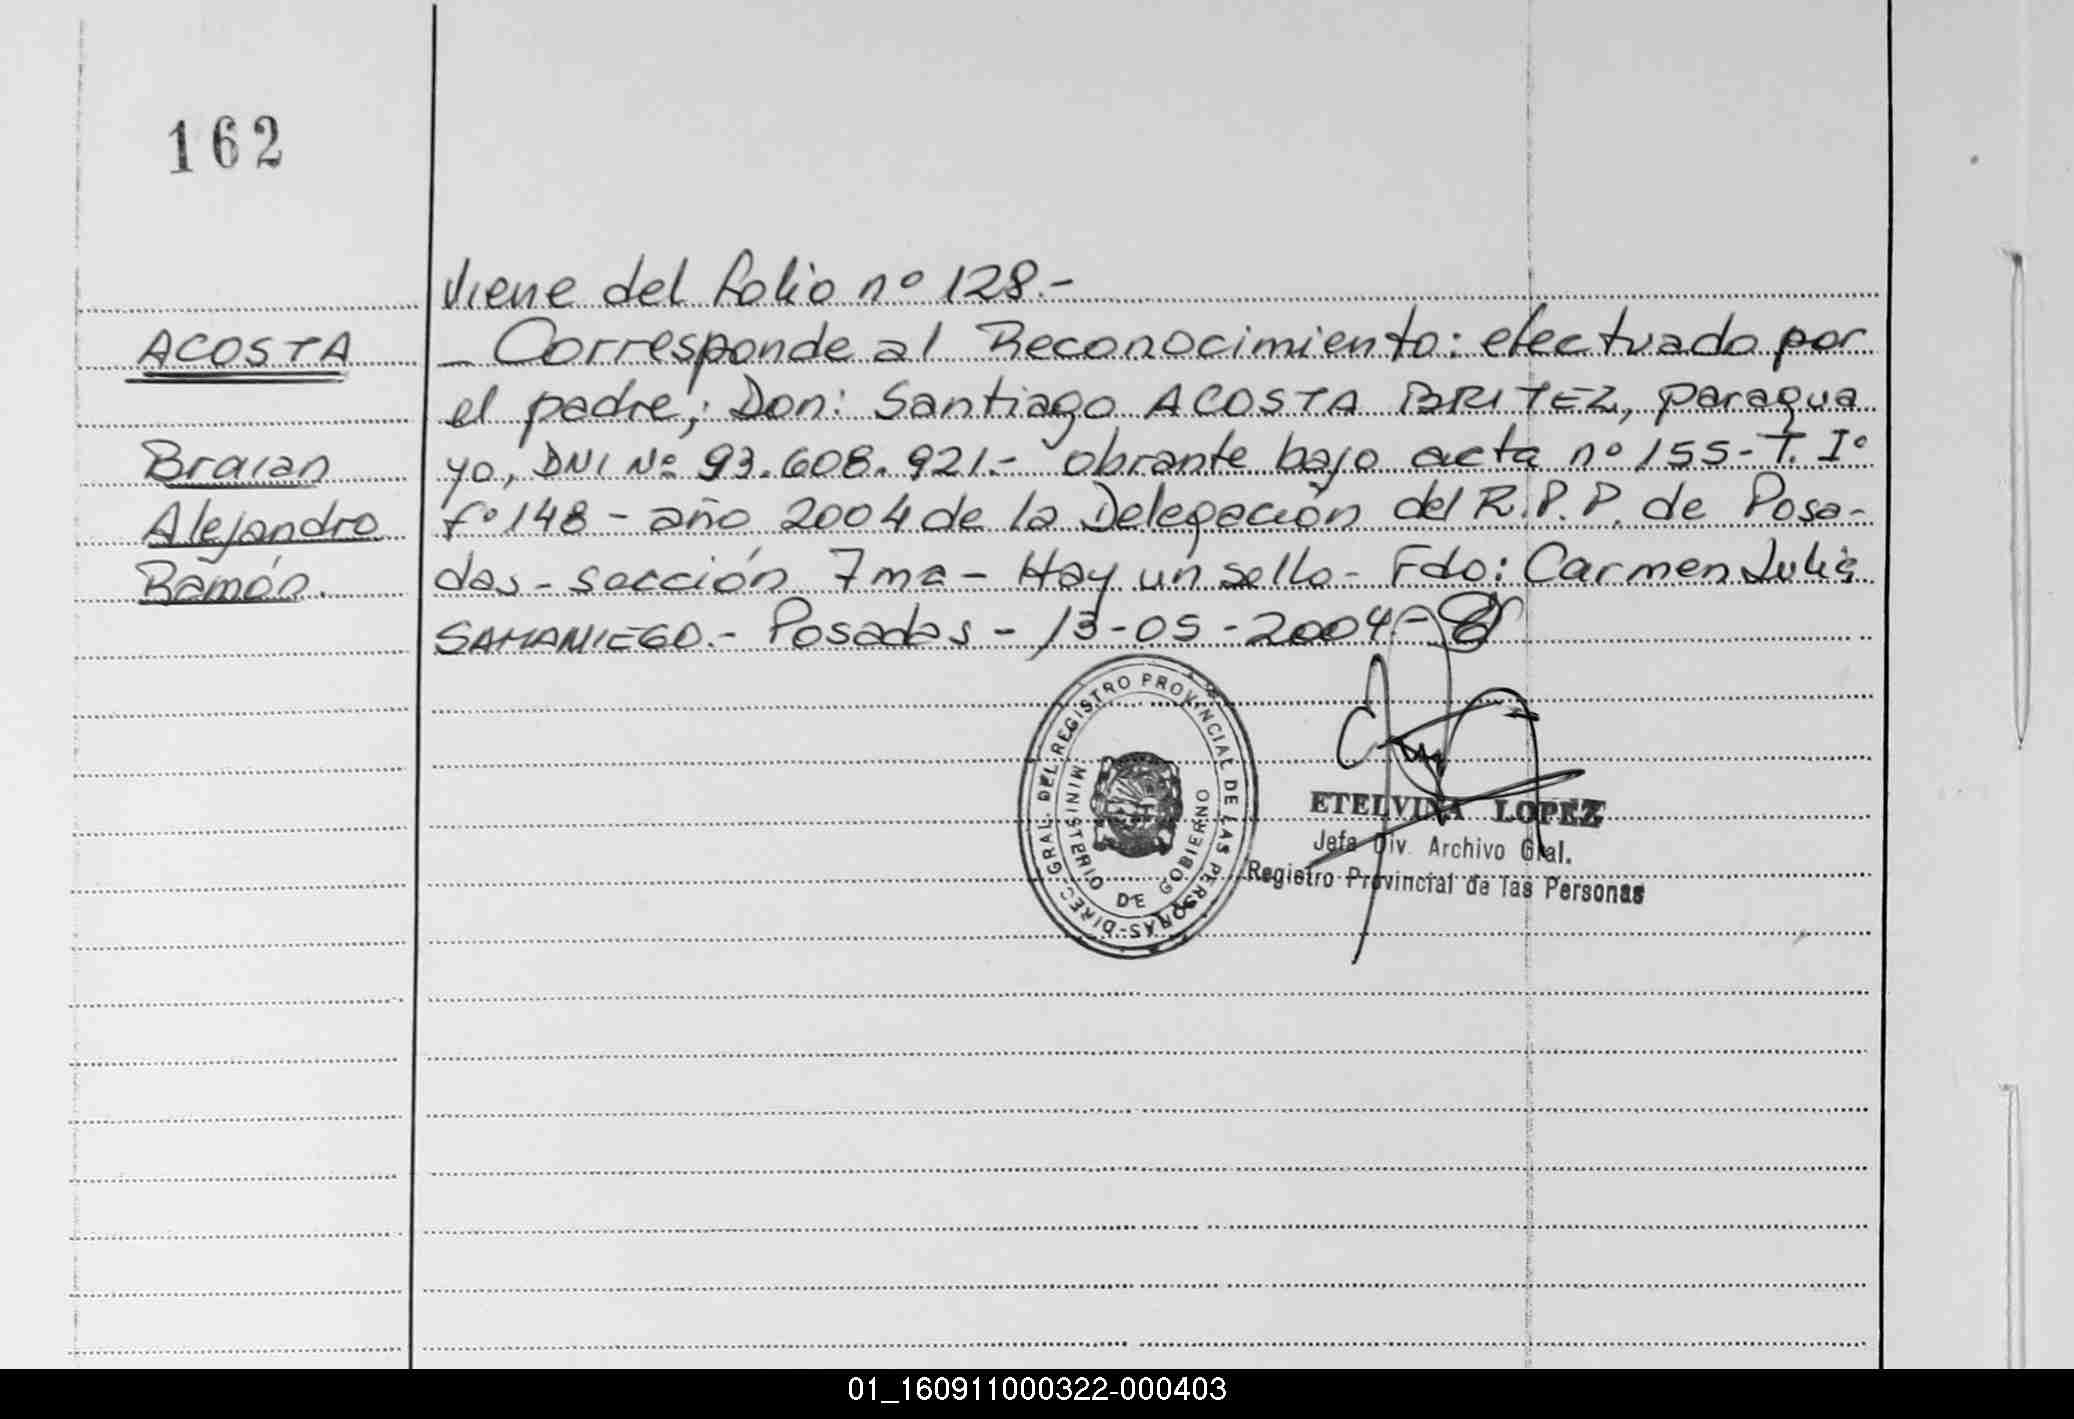 162
Viene del folio nº 128.-
ACOSTA
- Corresponde al Reconocimiento: efectuado por
el padre; Don: Santiago ACOSTA BRITEZ, paragua
Braian
yo, DNI Nº 93.608.921.- obrante bajo acta nº 155-T. Iº
Alejandro
fº 148 - año 2004 de la Delegación del R.P.P. de Posa-
Ramón.
das - sección 7ma - Hay un sello - Fdo: Carmen Julia
SAMANIEGO.- Posadas - 13-05-2004.-
DIREC. GRAL. DEL REGISTRO PROVINCIAL DE LAS PERSONAS-
MINISTERIO DE GOBIERNO
ETELVINA LOPEZ
Jefa Div. Archivo Gral.
Registro Provincial de las Personas
01_160911000322-000403